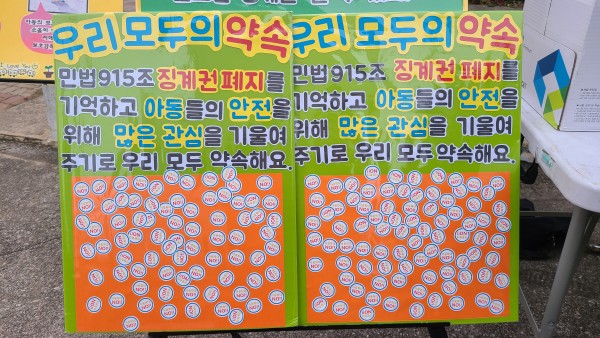 우리 모두의 약속
민법 915조 징계권 폐지를
기억하고 아동들의 안전을
위해 많은 관심을 기울여
주기로 우리 모두 약속해요.
NO!
우리 모두의 약속
민법 915조 징계권 폐지를
기억하고 아동들의 안전을
위해 많은 관심을 기울여
주기로 우리 모두 약속해요.
NO!